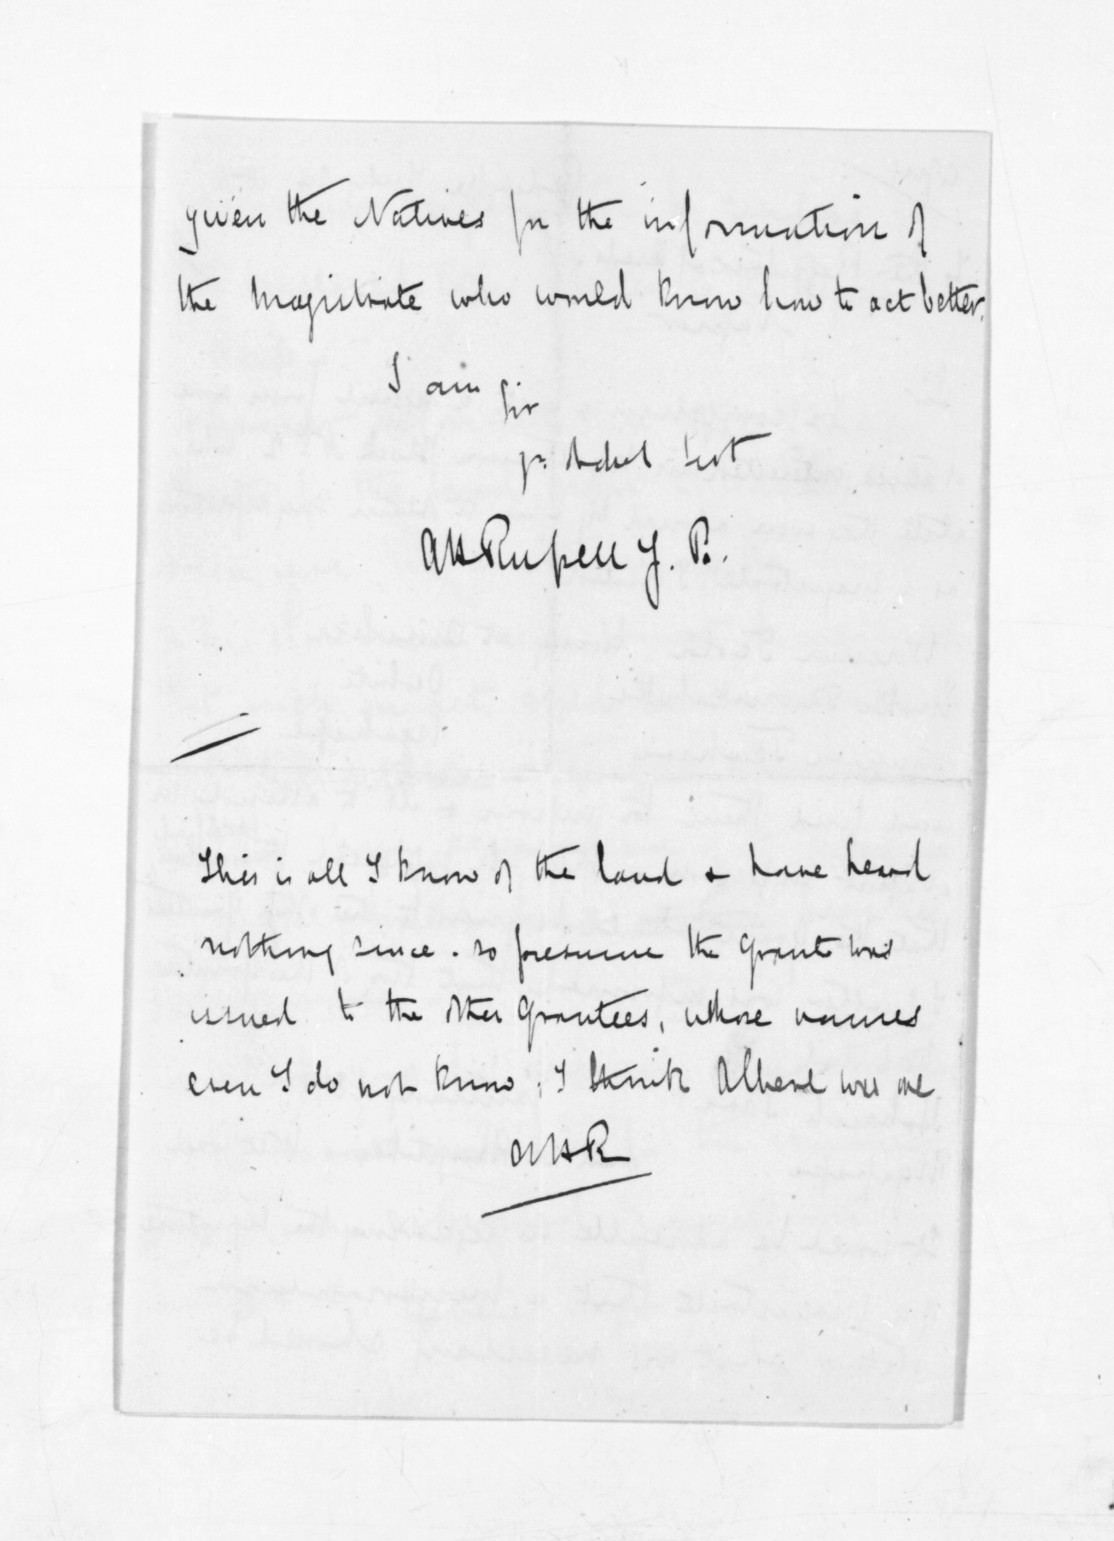 given the Natives for the information of
the Magistrate who would know how to act better.
I am Sir
yr. Obdt Svt
AHRussell J. P.
This is all I know of the land & have heard
nothing since. so presume the grant was
issued to the other Grantees, whose names
even I do not know; I think Alband was one
AHR